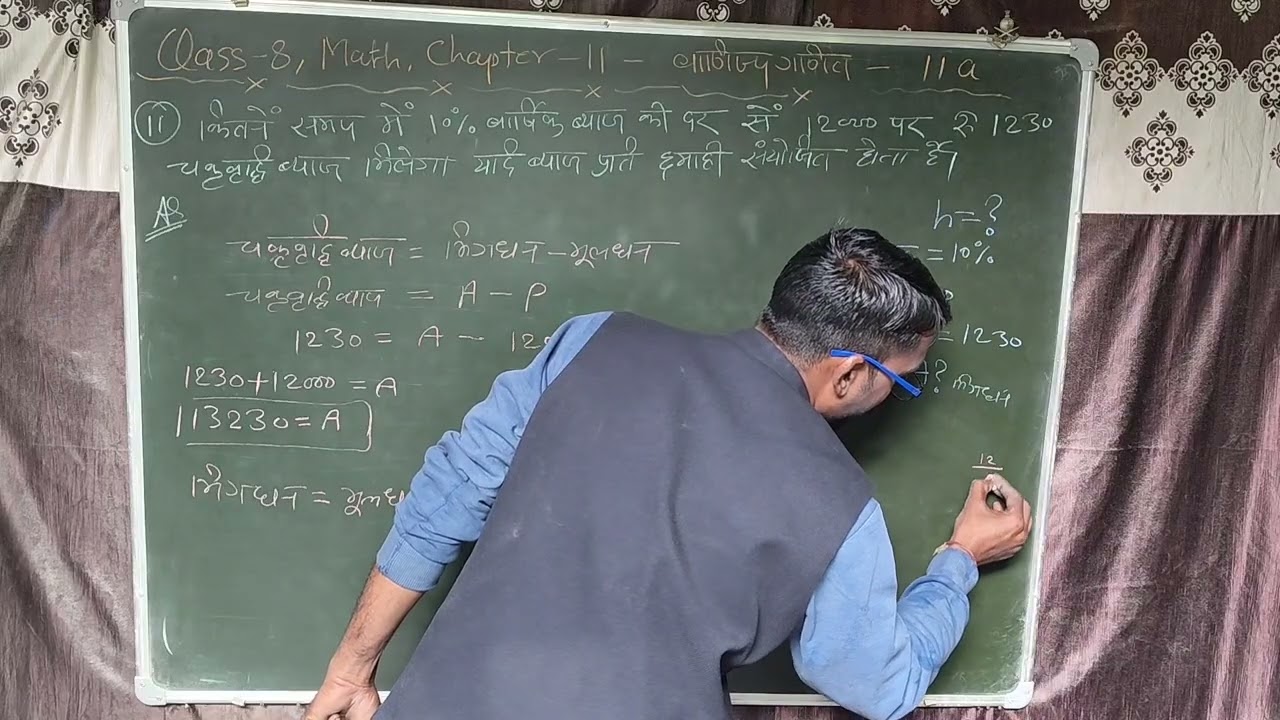 Class-8, Math, Chapter-11 - वाणिज्य गणित - 11a
11 कितने समय में 10% वार्षिक ब्याज की दर से 12000 पर रु 1230
चक्रवृद्धि ब्याज मिलेगा यदि ब्याज प्रती छमाही संयोजित होता है।
AS
n=?
चक्रवृद्धि ब्याज = मिश्रधन - मूलधन
= 10%
चक्रवृद्धि ब्याज = A - P
1230 = A - 12
= 1230
1230 + 12000 = A
? मिश्रधन
13230 = A
12
मिश्रधन = मूलध